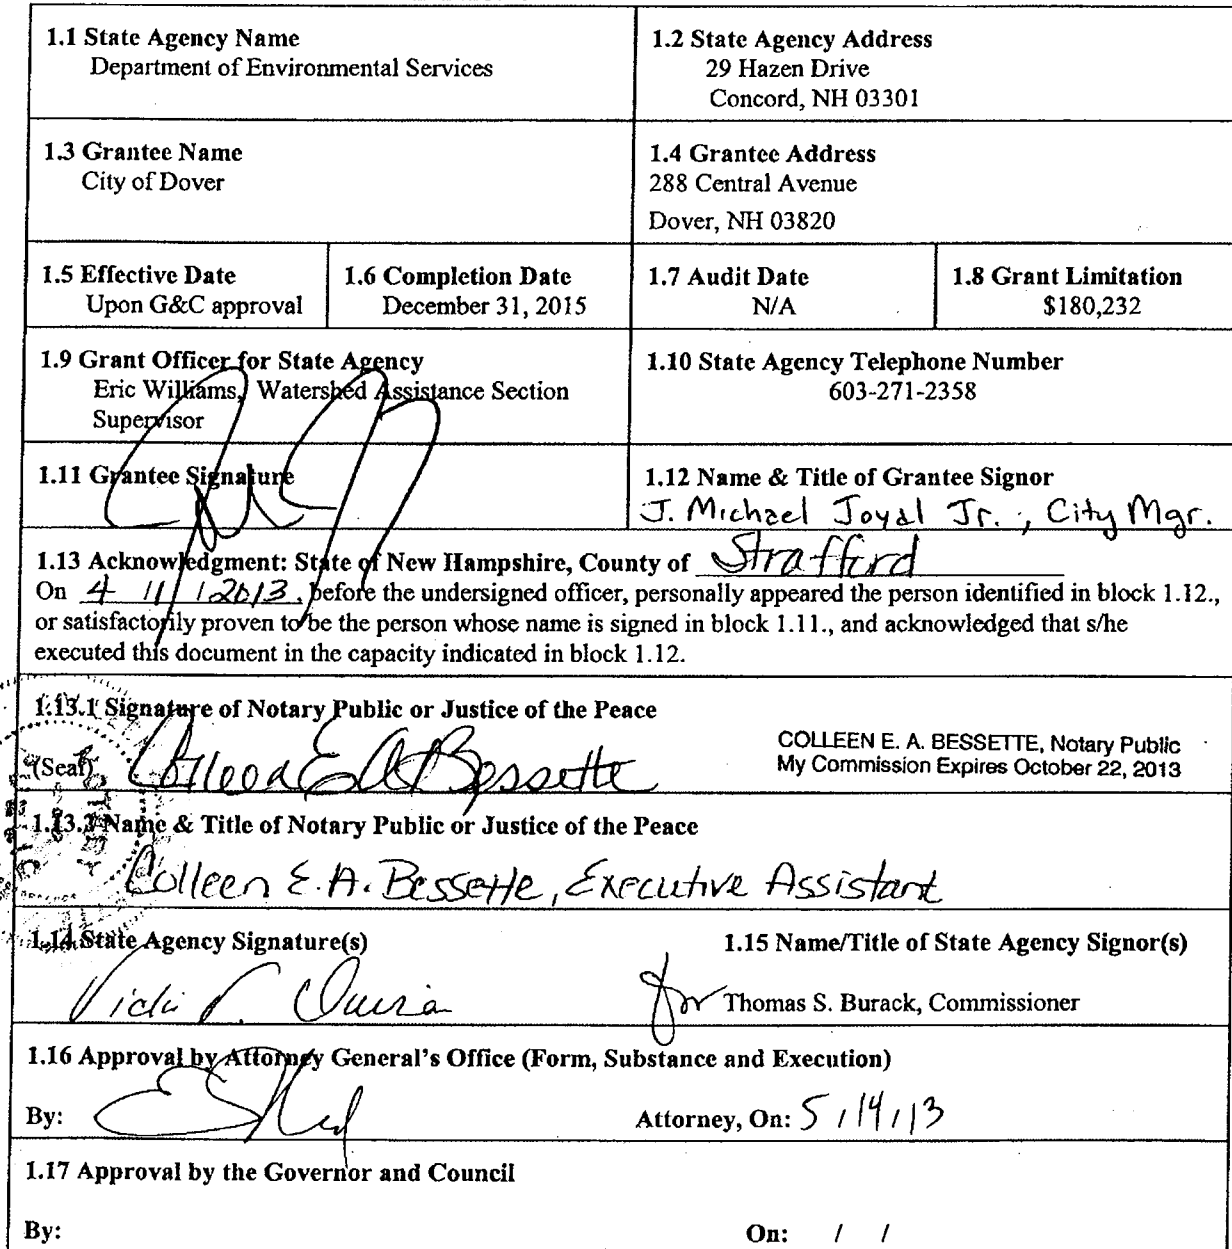 1.1 State Agency Name
Department of Environmental Services
1.2 State Agency Address
29 Hazen Drive
Concord, NH 03301
1.3 Grantee Name
City of Dover
1.4 Grantee Address
288 Central Avenue
Dover, NH 03820
1.5 Effective Date
Upon G&C approval
1.6 Completion Date
December 31, 2015
1.7 Audit Date
N/A
1.8 Grant Limitation
$180,232
1.9 Grant Officer for State Agency
Eric Williams, Watershed Assistance Section
Supervisor
1.10 State Agency Telephone Number
603-271-2358
1.11 Grantee Signature
1.12 Name & Title of Grantee Signor
J. Michael Joyal Jr., City Mgr.
1.13 Acknowledgment: State of New Hampshire, County of Strafford
On 4 / 11 / 2013, before the undersigned officer, personally appeared the person identified in block 1.12.,
or satisfactorily proven to be the person whose name is signed in block 1.11., and acknowledged that s/he
executed this document in the capacity indicated in block 1.12.
1.13.1 Signature of Notary Public or Justice of the Peace
(Seal) Colleen E A Bessette
COLLEEN E. A. BESSETTE, Notary Public
My Commission Expires October 22, 2013
1.13.2 Name & Title of Notary Public or Justice of the Peace
Colleen E. A. Bessette, Executive Assistant
1.14 State Agency Signature(s)
Vicki V. Quiram
1.15 Name/Title of State Agency Signor(s)
for Thomas S. Burack, Commissioner
1.16 Approval by Attorney General's Office (Form, Substance and Execution)
By:
Attorney, On: 5 / 14 / 13
1.17 Approval by the Governor and Council
By:
On: / /